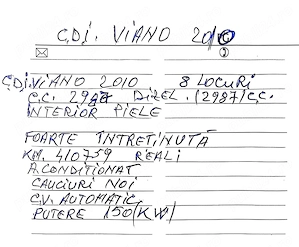 C,D,I. VIANO 2010
C,D,I. VIANO 2010 8 LOCURI
C.C. 2987 DIZEL. (2987) C.C.
INTERIOR PIELE
FOARTE INTRETINUTĂ
KM. 410759 REALI
A.CONDITIONAT
CAUCIURI NOI
C.V. AUTOMATIC,
PUTERE 150 (KW)